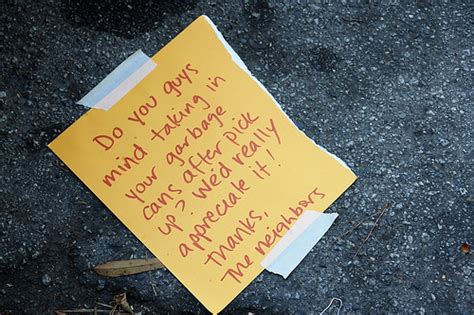 Do you guys
mind taking in
your garbage
cans after pick
up? We'd really
appreciate it!
Thanks,
The neighbors